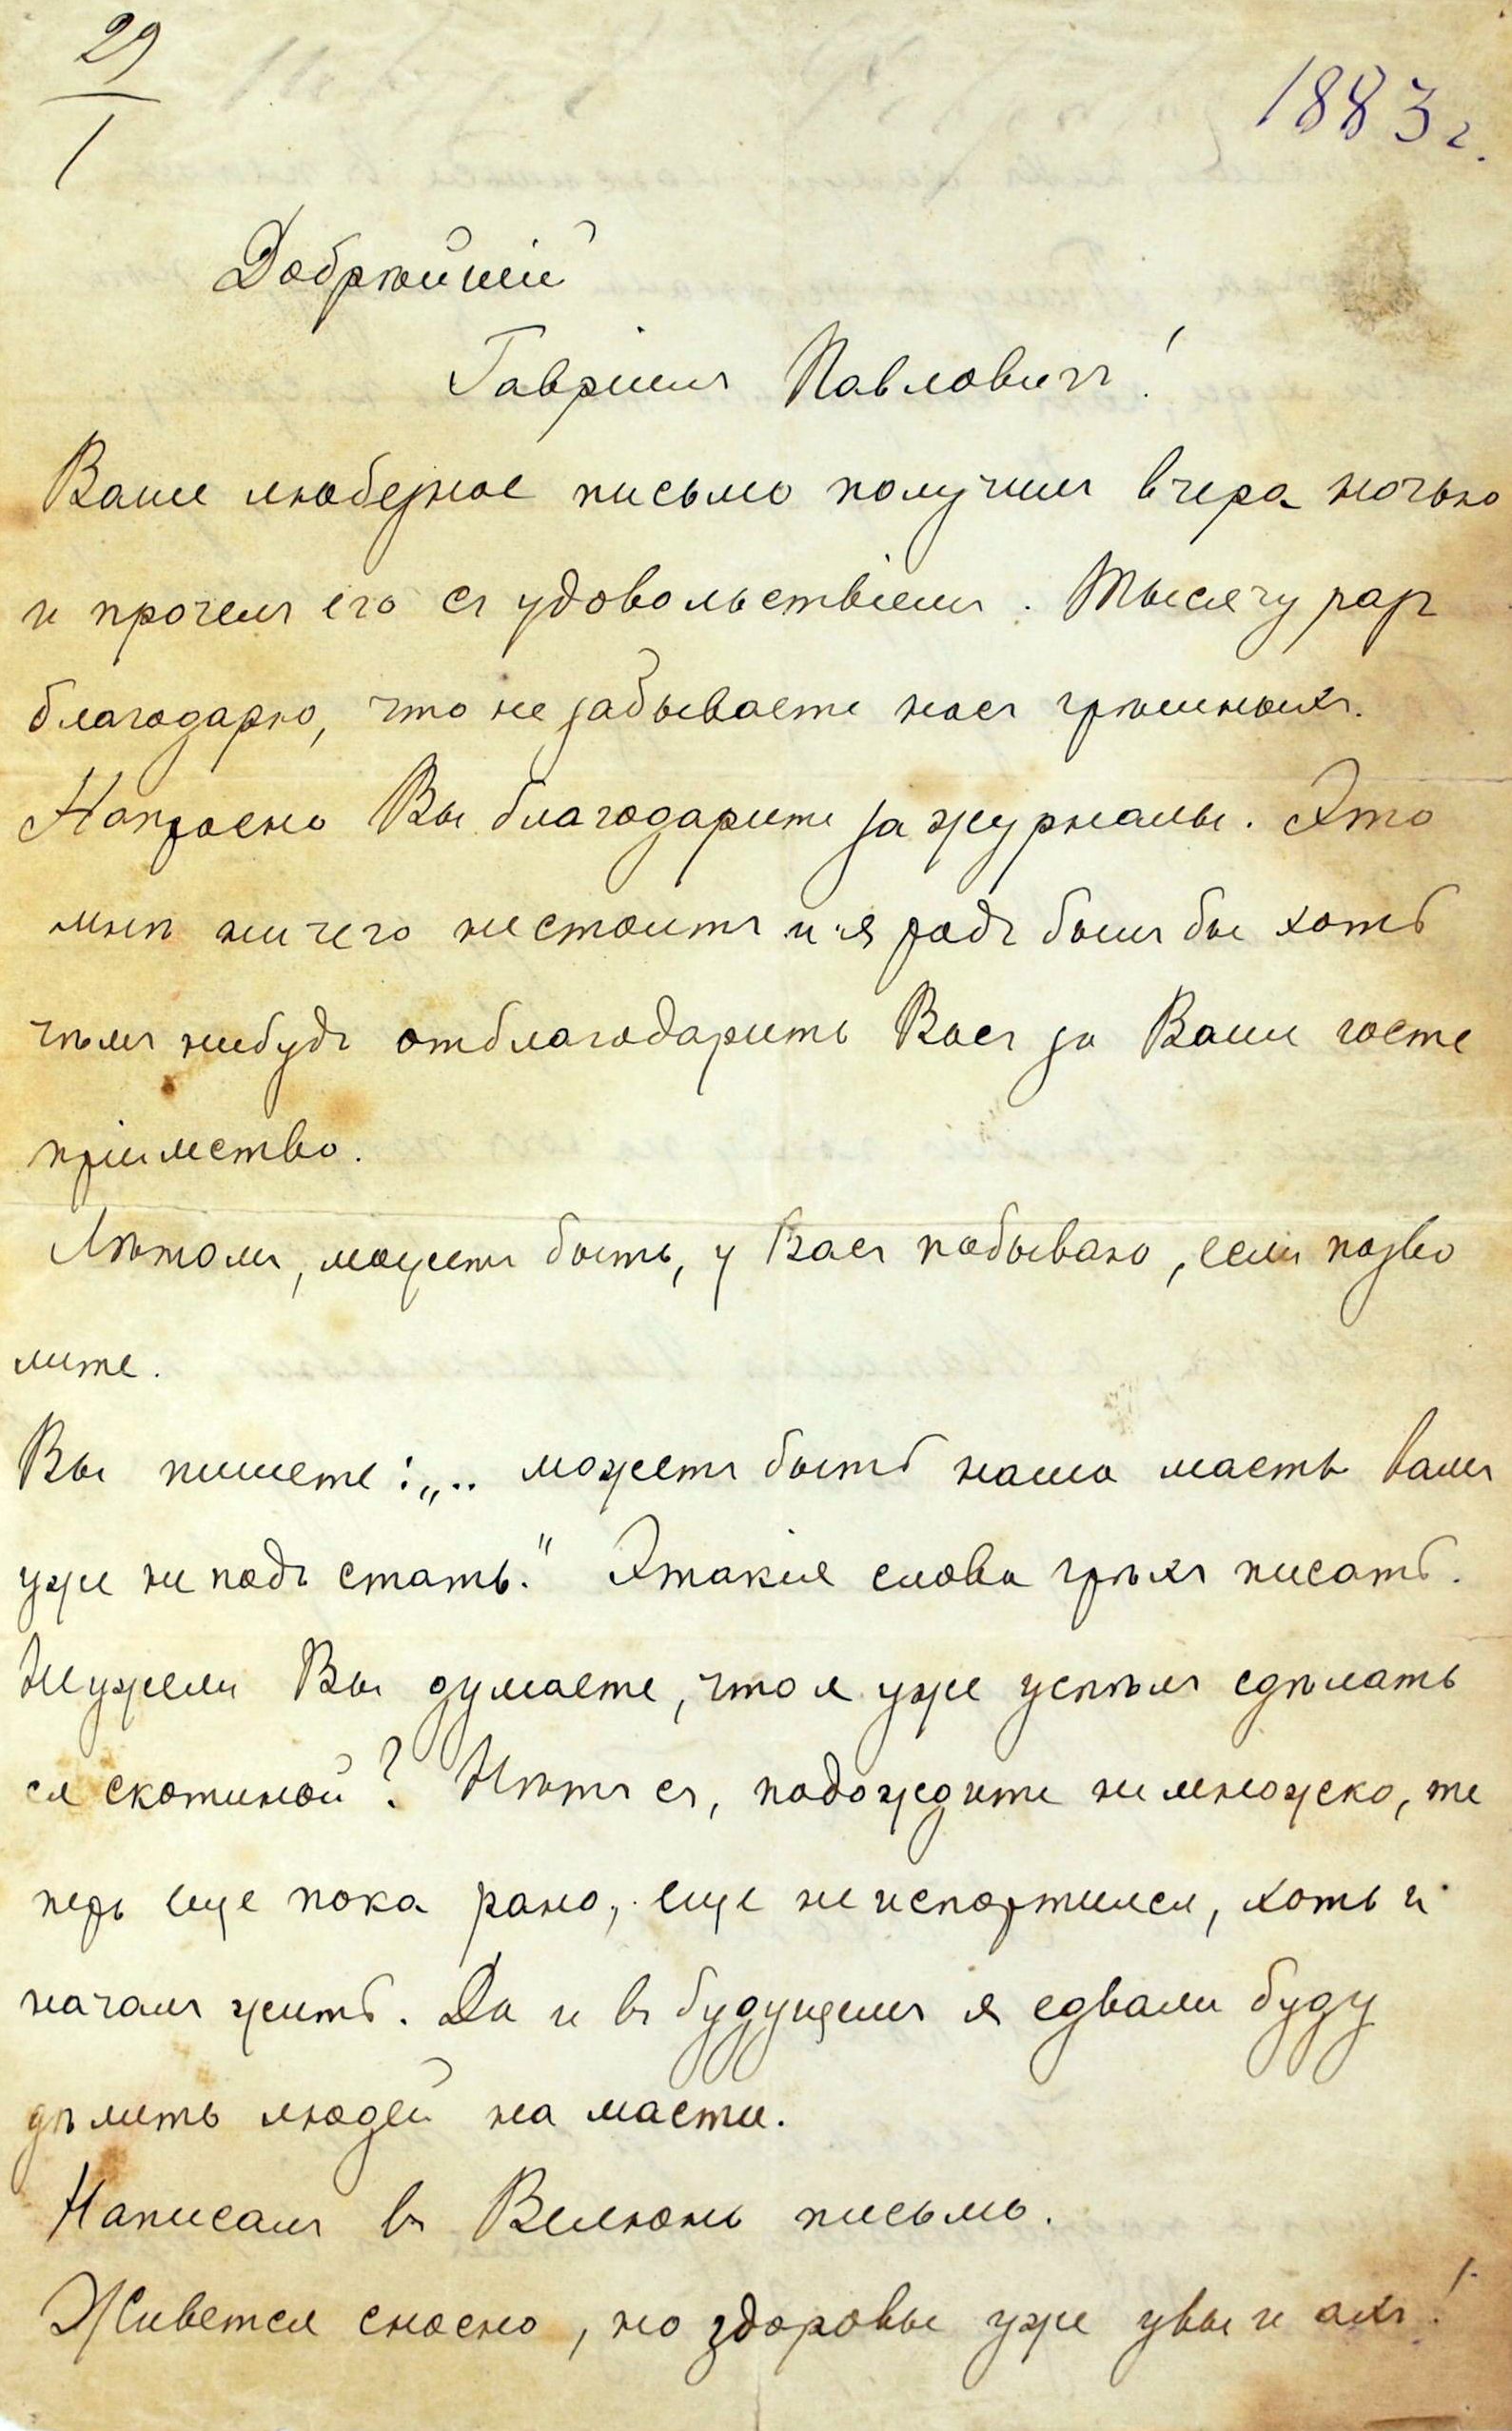 29
1
1883 г.
Добрѣйшій
Гавріилъ Павловичъ!
Ваше любезное письмо получилъ вчера ночью
и прочелъ его съ удовольствіемъ. Тысячу разъ
благодарю, что не забываете насъ грѣшныхъ.
Напрасно Вы благодарите за журналы. Это
мнѣ ничего не стоитъ и я радъ былъ бы хоть
чѣмъ нибудь отблагодарить Васъ за Ваше госте
пріимство.
Лѣтомъ, можетъ быть, у Васъ побываю, если позво
лите.
Вы пишете: „.. можетъ быть наша масть вамъ
уже не подъ стать." Этакія слова грѣхъ писать.
Неужели Вы думаете, что я уже успѣлъ сдѣлать
ся скотиной? Нѣтъ съ, подождите немножко, те
перь еще пока рано, еще не испортился, хоть и
началъ жить. Да и въ будущемъ я едвали буду
дѣлить людей на масти.
Написалъ въ Велюнь письмо.
Живется сносно, но здоровье уже увы и ахъ!